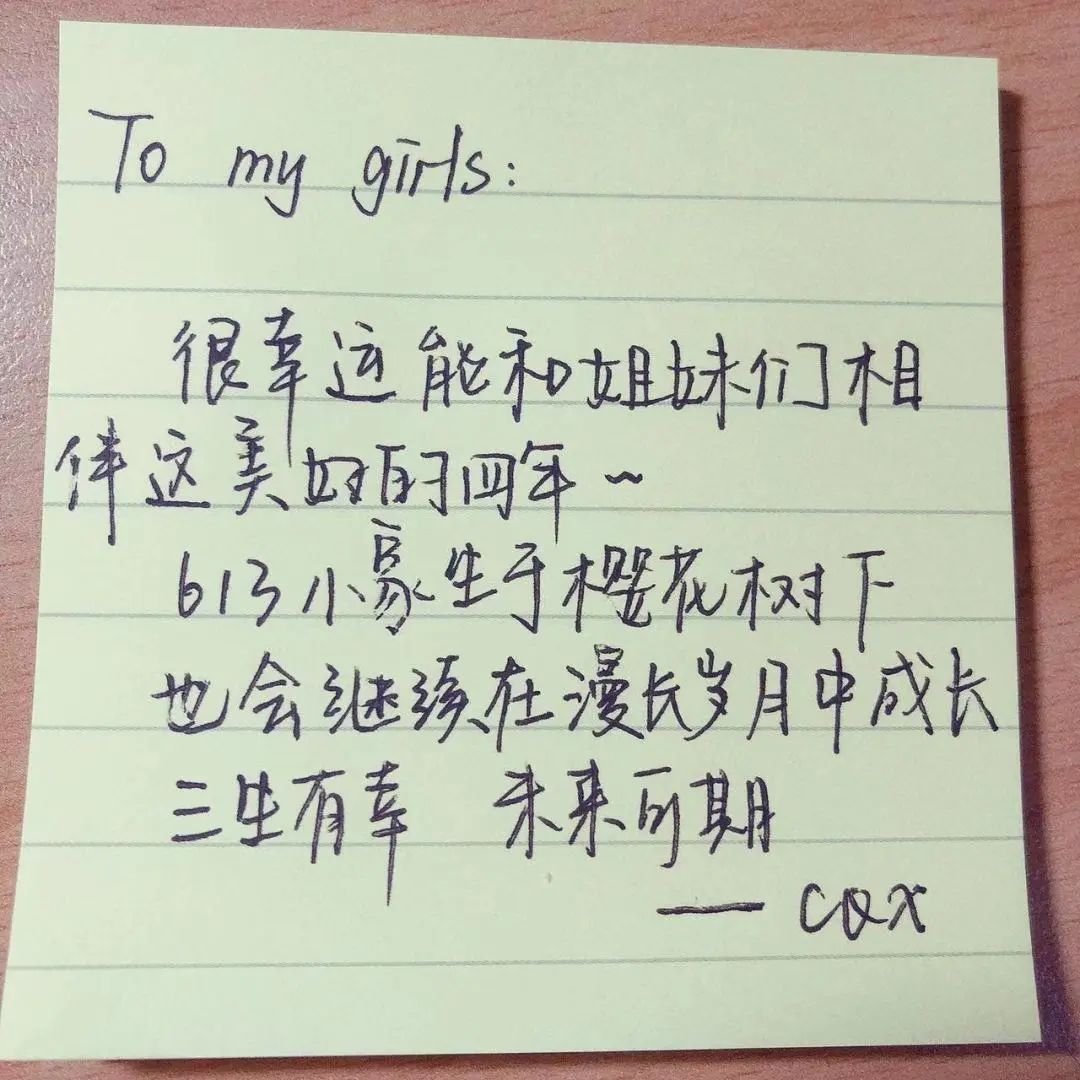 To my girls:
很幸运能和姐妹们相
伴这美好的四年~
613小家生于樱花树下
也会继续在漫长岁月中成长
三生有幸 未来可期
——cqx